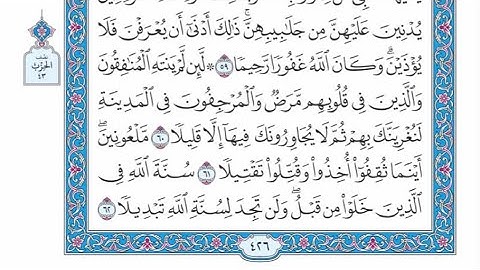 يُدْنِينَ عَلَيْهِنَّ مِن جَلَٰبِيبِهِنَّۚ ذَٰلِكَ أَدْنَىٰٓ أَن يُعْرَفْنَ فَلَا
يُؤْذَيْنَۗ وَكَانَ ٱللَّهُ غَفُورٗا رَّحِيمٗا ٥٩ ۞ لَّئِن لَّمْ يَنتَهِ ٱلْمُنَٰفِقُونَ
وَٱلَّذِينَ فِى قُلُوبِهِم مَّرَضٞ وَٱلْمُرْجِفُونَ فِى ٱلْمَدِينَةِ
لَنُغْرِيَنَّكَ بِهِمْ ثُمَّ لَا يُجَاوِرُونَكَ فِيهَآ إِلَّا قَلِيلٗا ٦٠ مَّلْعُونِينَۖ
أَيْنَمَا ثُقِفُوٓا۟ أُخِذُوا۟ وَقُتِّلُوا۟ تَقْتِيلٗا ٦١ سُنَّةَ ٱللَّهِ فِى
ٱلَّذِينَ خَلَوْا۟ مِن قَبْلُۖ وَلَن تَجِدَ لِسُنَّةِ ٱللَّهِ تَبْدِيلٗا ٦٢
نصف
الحزب
٤٣
٤٢٦